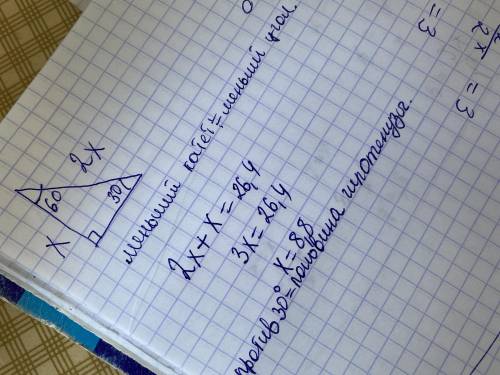 2x
60
30
x
меньший катет = меньший угол.
2x + x = 26,4
3x = 26,4
x = 8,8
против 30° = половина гипотенузе.
2x
= 3
= 3